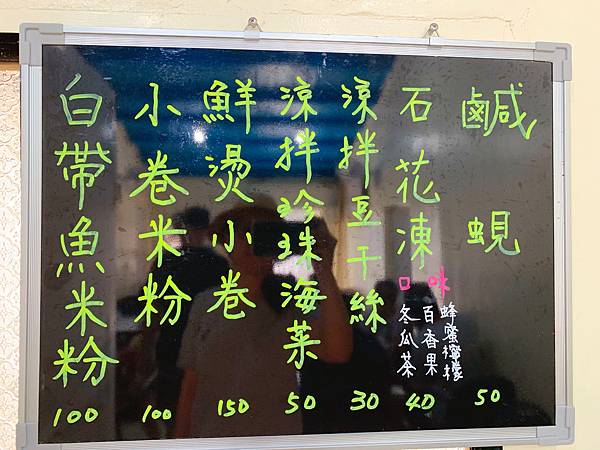 鹹蜆
50
石花凍
口味
蜂蜜檸檬
百香果
冬瓜茶
40
涼拌豆干絲
30
涼拌珍珠海菜
50
鮮燙小卷
150
小卷米粉
100
白帶魚米粉
100